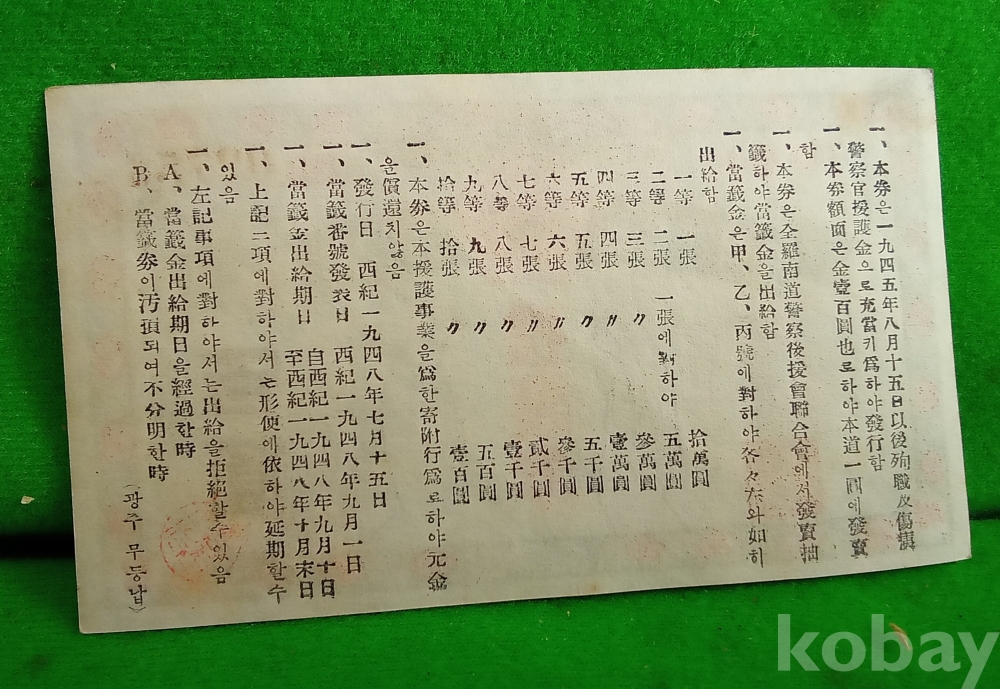 一、本券은一九四五年八月十五日以後殉職及傷痍
警察官援護金으로充當키爲하야發行함
一、本券額面은金壹百圓也로하야本道一圓에發賣
함
一、本券은全羅南道警察後援會聯合會에서發賣抽
籤하야當籤金을出給함
一、當籤金은甲、乙、丙號에對하야各々左와如히
出給함
一等 一張 拾萬圓
二等 二張 一張에對하야 五萬圓
三等 三張 〃 參萬圓
四等 四張 〃 壹萬圓
五等 五張 〃 五千圓
六等 六張 〃 參千圓
七等 七張 〃 貳千圓
八等 八張 〃 壹千圓
九等 九張 〃 五百圓
拾等 拾張 〃 壹百圓
一、本券은本援護事業을爲한寄附行爲로하야元金
을償還치않음
一、發行日 西紀一九四八年七月十五日
一、當籤番號發表日 西紀一九四八年九月一日
一、當籤金出給期日 自西紀一九四八年九月十日
至西紀一九四八年十月末日
一、上記二項에對하야서는形便에依하야延期할수
있음
一、左記事項에對하야서는出給을拒絕할수있음
A、當籤金出給期日을經過한時
B、當籤券이汚損되여不分明한時
(광주 무등납)
kobay